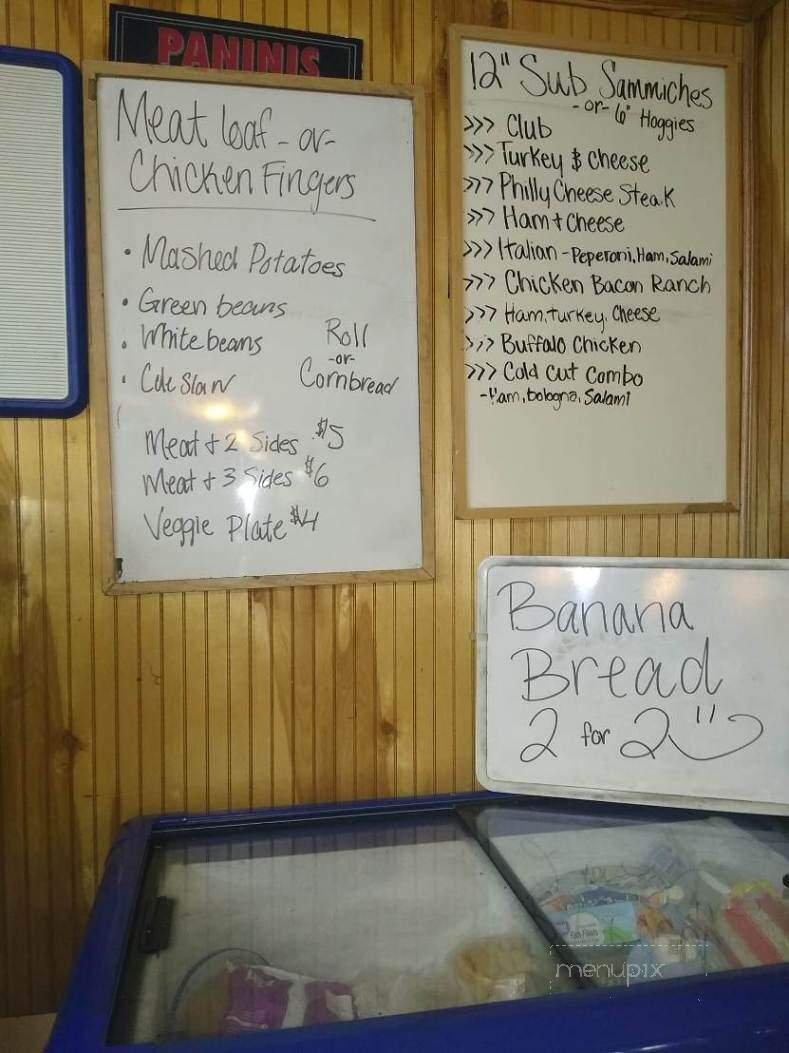 PANINIS
Meat loaf - or -
Chicken Fingers
• Mashed Potatoes
• Green beans
• White beans
• Cole Slaw
Roll
-or-
Cornbread
Meat + 2 Sides $5
Meat + 3 Sides $6
Veggie Plate $4
12" Sub Sammiches
-or- 6" Hoggies
>>> Club
>>> Turkey & Cheese
>>> Philly Cheese Steak
>>> Ham + Cheese
>>> Italian - Peperoni, Ham, Salami
>>> Chicken Bacon Ranch
>>> Ham, turkey, Cheese
>>> Buffalo Chicken
>>> Cold Cut Combo
- Ham, bologna, Salami
Banana
Bread
2 for 2
menupix